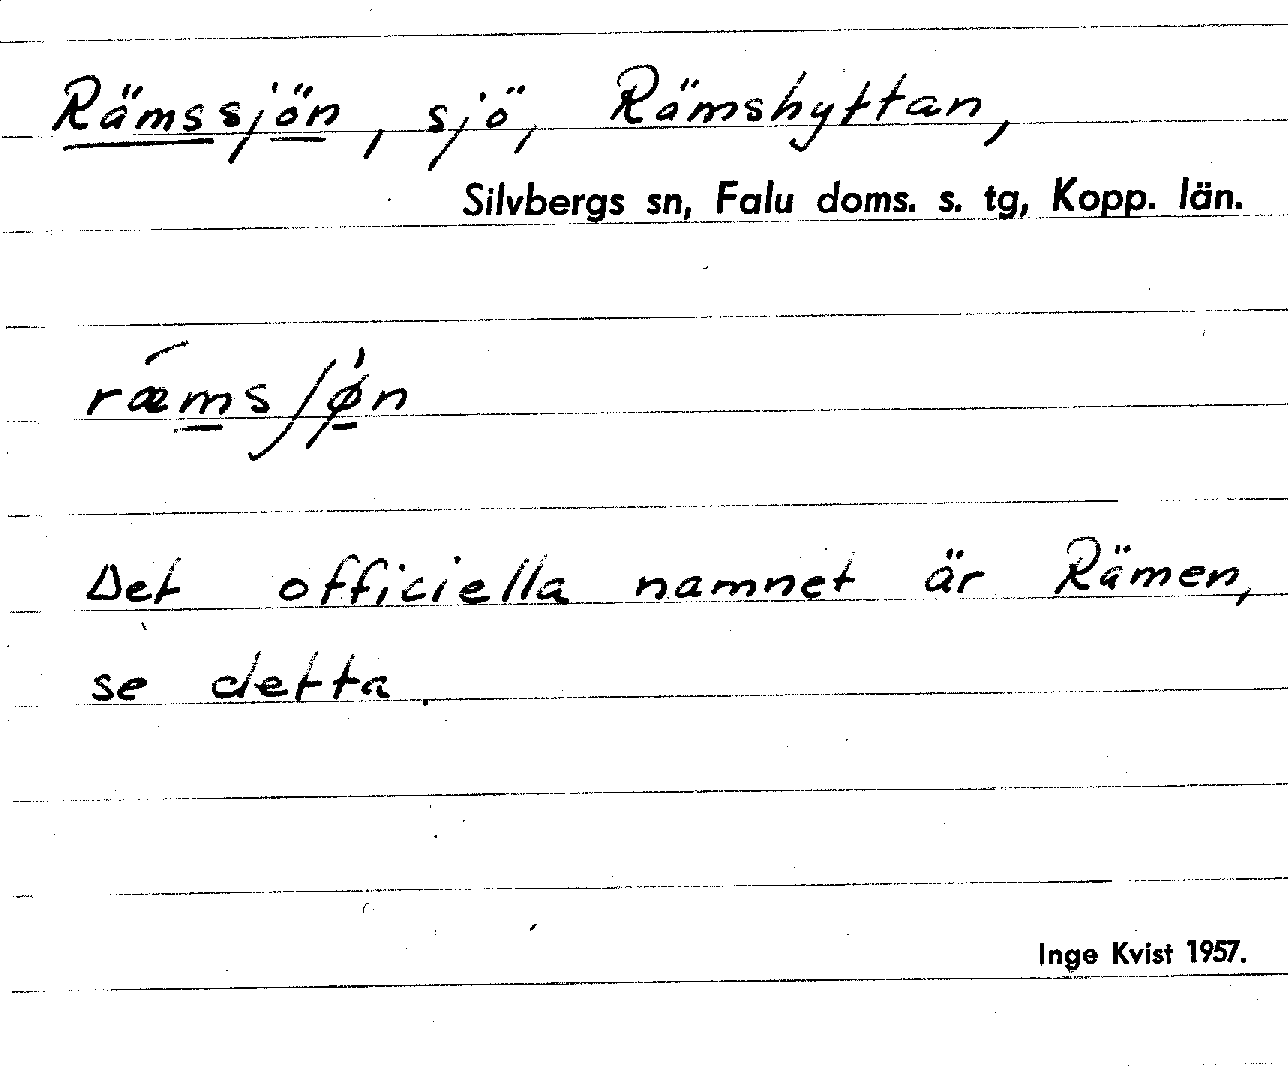 Rämssjön, sjö, Rämshyttan,
Silvbergs sn, Falu doms. s. tg, Kopp. län.
rǽmsʃø̀n
Det officiella namnet är Rämen,
se detta.
Inge Kvist 1957.